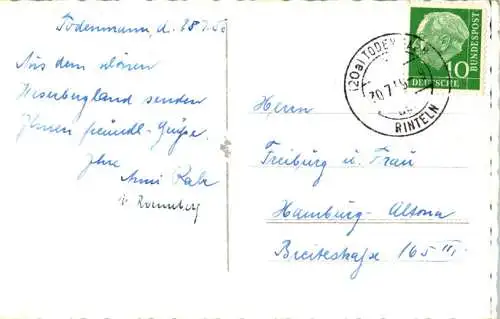 Todenmann, d. 28.7.5
Aus dem schönen
Weserbergland senden
Ihnen freundl. Grüße
Ihre
Anni
Herrn
Freiburg u. Frau
Hamburg-Altona
Breitestraße 165 III
(20a) TODENMANN
30.7.5
RINTELN
DEUTSCHE
BUNDESPOST
10